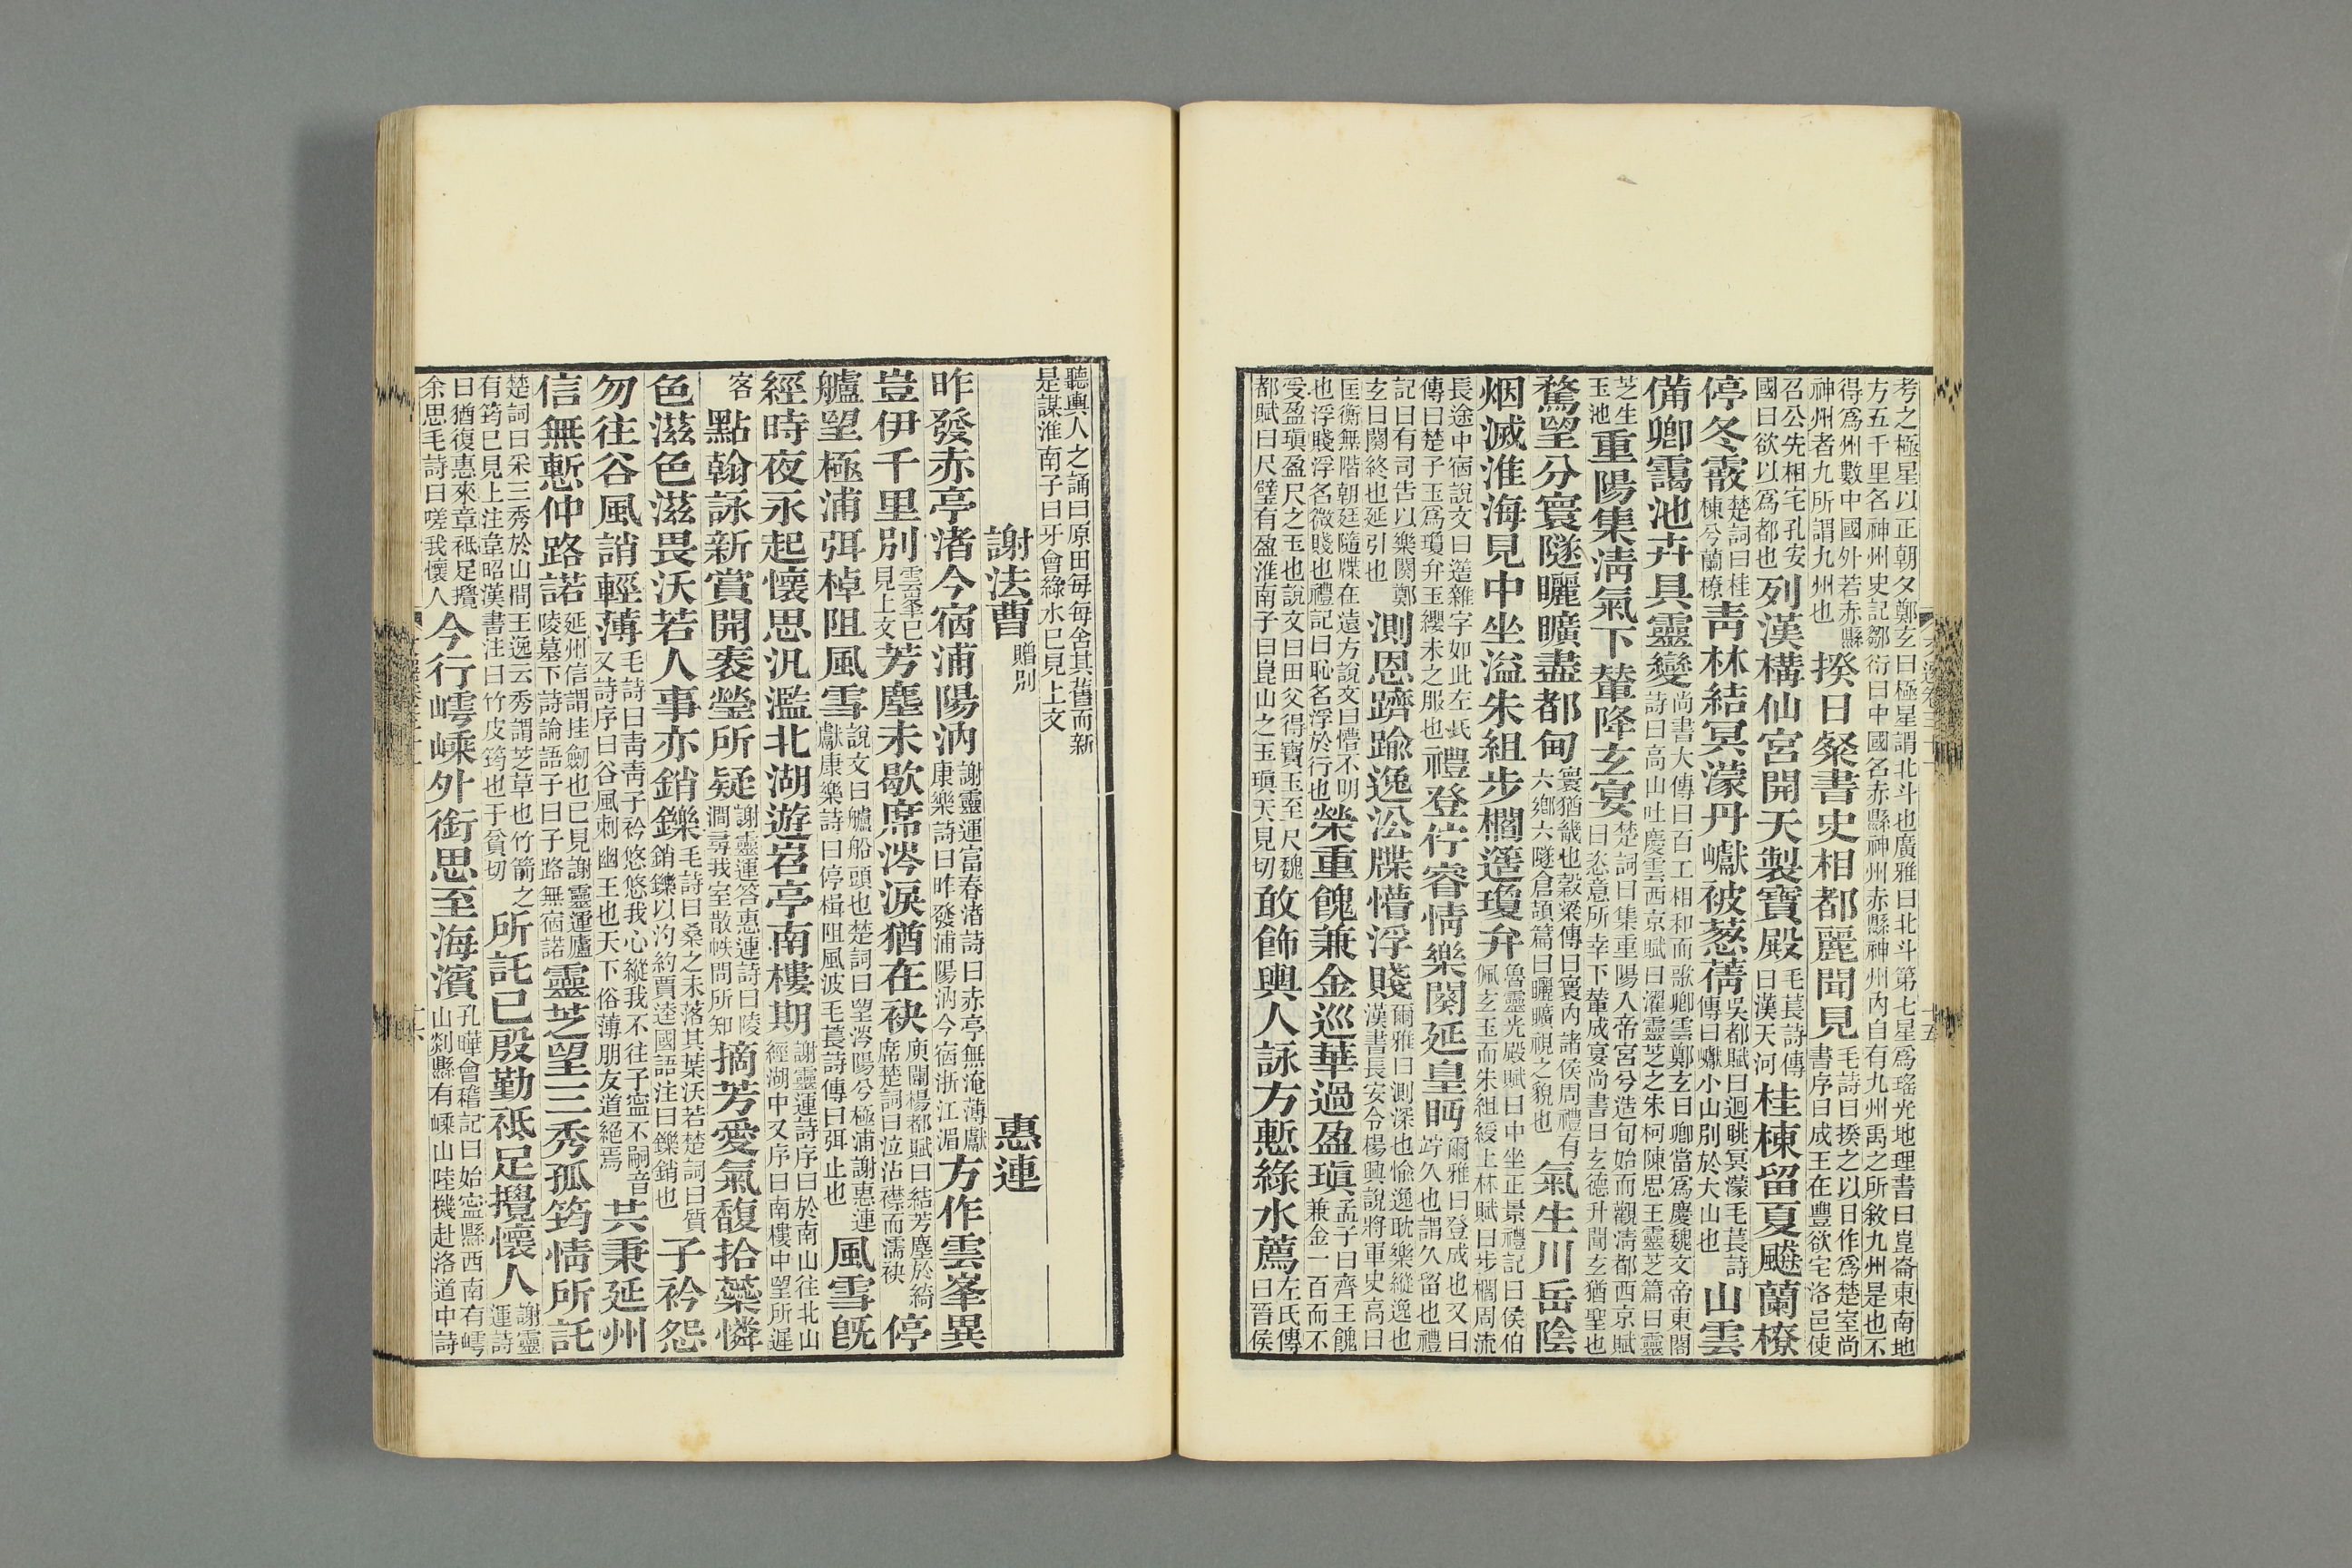 考之極星以正朝夕鄭玄曰極星謂北斗也廣雅曰北斗第七星爲瑤光地理書曰崑崙東南地方五千里名神州史記鄒衍曰中國名赤縣神州赤縣神州內自有九州禹之所敘九州是也不
得爲州數中國外若赤縣神州者九所謂九州也揆日粲書史相都麗聞見毛詩曰揆之以日作爲楚室尚書序曰成王在豐欲宅洛邑使
召公先相宅孔安國曰欲以爲都也列漢構仙宮開天製寶殿毛萇詩傳曰漢天河桂棟留夏飈蘭橑
停冬霰楚詞曰桂棟兮蘭橑青林結冥濛丹巘被葱蒨吳都賦曰迴眺冥濛毛萇詩傳曰巘小山別於大山也山雲
備卿靄池卉具靈變尚書大傳曰百工相和而歌卿雲鄭玄曰卿當爲慶魏文帝東閣詩曰高山吐慶雲西京賦曰濯靈芝之朱柯陳思王靈芝篇曰靈
芝生玉池重陽集清氣下輦降玄宴楚詞曰集重陽入帝宮兮造旬始而觀清都西京賦曰恣意所幸下輦成宴尚書曰玄德升聞玄猶聖也
騖望分寰隧曬曠盡都甸寰猶畿也穀梁傳曰寰內諸侯周禮有六鄉六隧倉頡篇曰曬曠視之貌也氣生川岳陰
烟滅淮海見中坐溢朱組步櫩簉瓊弁魯靈光殿賦曰中坐正景禮記曰侯伯佩玄玉而朱組綬上林賦曰步櫩周流
長途中宿說文曰簉雜字如此左氏傳曰楚子玉爲瓊弁玉纓未之服也禮登佇睿情樂闋延皇眄爾雅曰登成也又曰竚久也謂久留也禮
記曰有司告以樂闋鄭玄曰闋終也延引也測恩躋踰逸沿牒懵浮賤爾雅曰測深也愉逸耽樂縱逸也漢書長安令楊興說將軍史高曰
匡衡無階朝廷隨牒在遠方說文曰懵不明也浮賤浮名微賤也禮記曰恥名浮於行也榮重餽兼金巡華過盈瑱孟子曰齊王餽兼金一百而不
受盈瑱盈尺之玉也說文曰田父得寶玉至尺魏都賦曰尺璧有盈淮南子曰崑山之玉瑱天見切敢飾輿人詠方慙綠水薦左氏傳曰晉侯
聽輿人之誦曰原田每每舍其舊而新是謀淮南子曰牙會綠水已見上文
謝法曹贈別 惠連
昨發赤亭渚今宿浦陽汭謝靈運富春渚詩曰赤亭無淹薄獻康樂詩曰昨發浦陽汭今宿浙江湄方作雲峯異
豈伊千里別雲峯已見上文芳塵未歇席涔淚猶在袂庾闡楊都賦曰結芳塵於綺席楚詞曰泣沾襟而濡袂停
艫望極浦弭棹阻風雪說文曰艫船頭也楚詞曰望涔陽兮極浦謝惠連獻康樂詩曰停楫阻風波毛萇詩傳曰弭止也風雪旣
經時夜永起懷思汎濫北湖遊岧亭南樓期謝靈運詩序曰於南山往北山經湖中又序曰南樓中望所遲
客點翰詠新賞開袠瑩所疑謝靈運答惠連詩曰陵澗尋我室散帙問所知摘芳愛氣馥拾蘂憐
色滋色滋畏沃若人事亦銷鑠毛詩曰桑之未落其葉沃若楚詞曰質銷鑠以汋約賈逵國語注曰鑠銷也子衿怨
勿往谷風誚輕薄毛詩曰青青子衿悠悠我心縱我不往子寍不嗣音又詩序曰谷風刺幽王也天下俗薄朋友道絕焉共秉延州
信無慙仲路諾延州信謂挂劒也已見謝靈運廬陵墓下詩論語子曰子路無宿諾靈芝望三秀孤筠情所託
楚詞曰采三秀於山間王逸云秀謂芝草也竹箭之有筠已見上注韋昭漢書注曰竹皮筠也于貧切所託已殷勤祗足攪懷人謝靈運詩
曰猶復惠來章祗足攪余思毛詩曰嗟我懷人今行嶀嵊外銜思至海濱孔曄會稽記曰始寍縣西南有嶀山剡縣有嵊山陸機赴洛道中詩